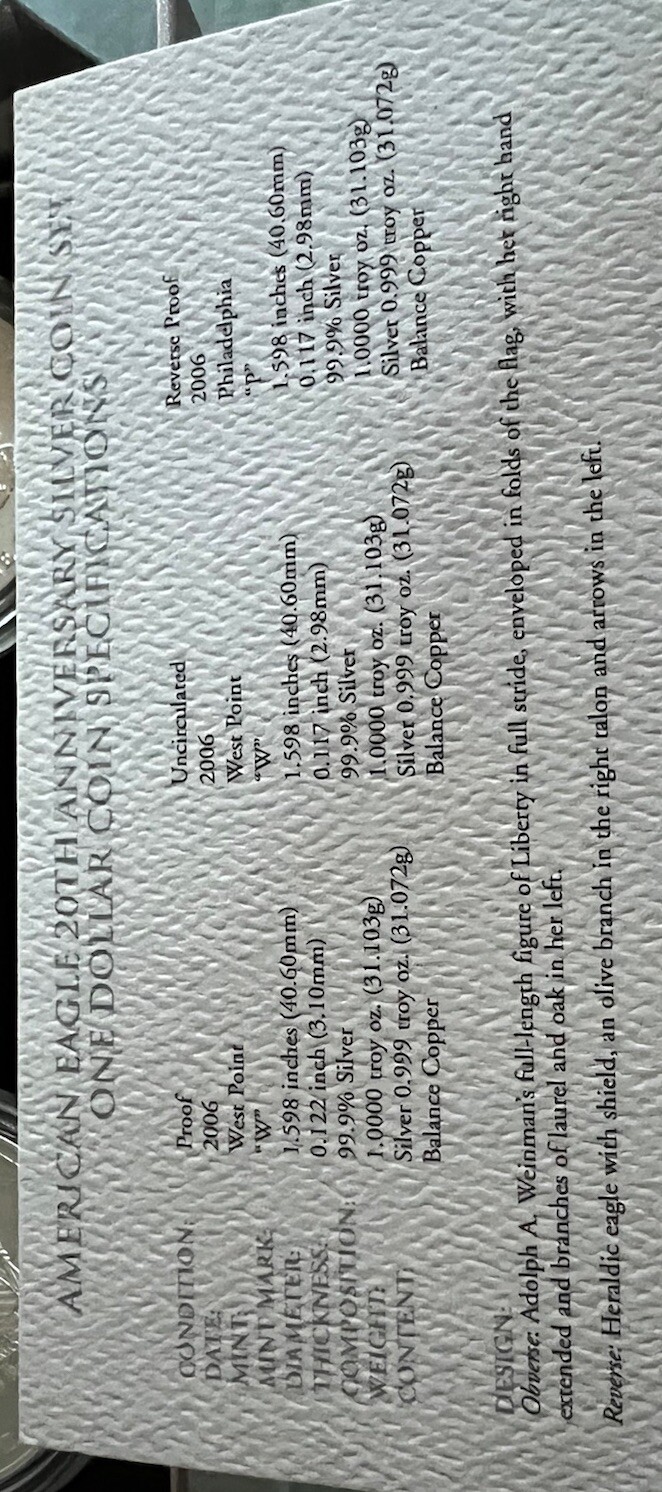 AMERICAN EAGLE 20TH ANNIVERSARY SILVER COIN SET
ONE DOLLAR COIN SPECIFICATIONS
CONDITION: Proof Uncirculated Reverse Proof
DATE: 2006 2006 2006
MINT: West Point West Point Philadelphia
MINT MARK: "W" "W" "P"
DIAMETER: 1.598 inches (40.60mm) 1.598 inches (40.60mm) 1.598 inches (40.60mm)
THICKNESS: 0.122 inch (3.10mm) 0.117 inch (2.98mm) 0.117 inch (2.98mm)
COMPOSITION: 99.9% Silver 99.9% Silver 99.9% Silver
WEIGHT: 1.0000 troy oz. (31.103g) 1.0000 troy oz. (31.103g) 1.0000 troy oz. (31.103g)
CONTENT: Silver 0.999 troy oz. (31.072g) Silver 0.999 troy oz. (31.072g) Silver 0.999 troy oz. (31.072g)
Balance Copper Balance Copper Balance Copper
DESIGN:
Obverse: Adolph A. Weinman's full-length figure of Liberty in full stride, enveloped in folds of the flag, with her right hand
extended and branches of laurel and oak in her left.
Reverse: Heraldic eagle with shield, an olive branch in the right talon and arrows in the left.